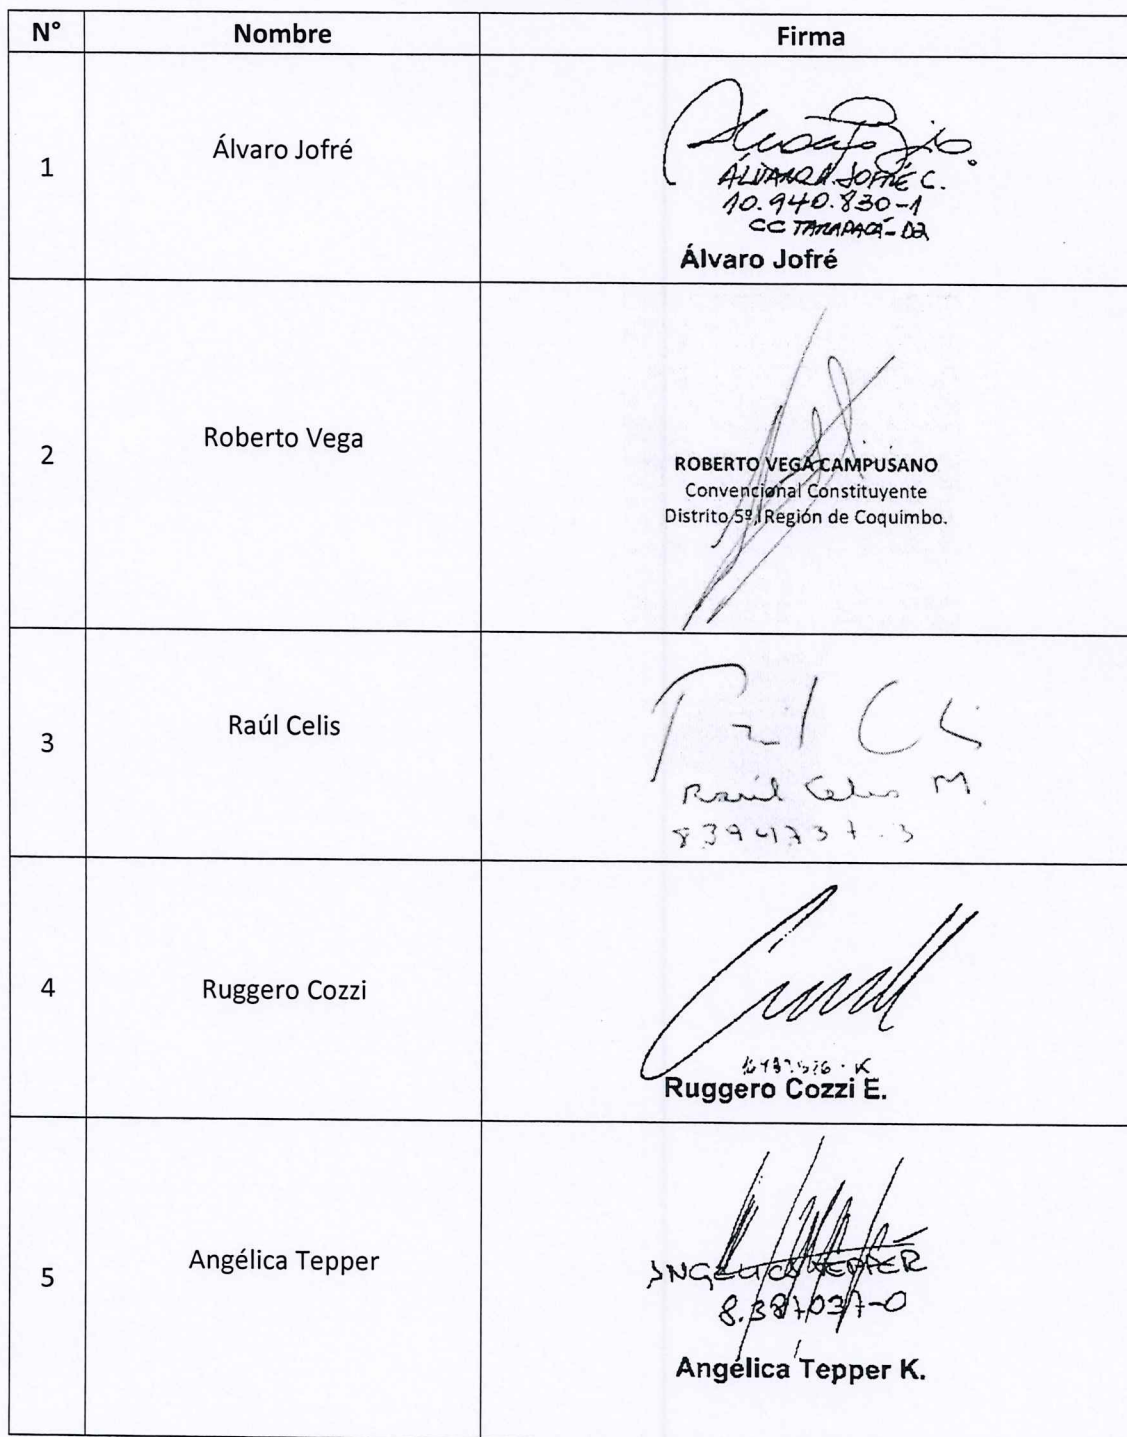 N° Nombre Firma
1 Álvaro Jofré
ÁLVARO JOFRÉ C.
10.940.830-1
CC TARAPACÁ-D2
Álvaro Jofré
2 Roberto Vega
ROBERTO VEGA CAMPUSANO
Convencional Constituyente
Distrito 5º, Región de Coquimbo.
3 Raúl Celis
Raúl Celis M.
4 Ruggero Cozzi
Ruggero Cozzi E.
5 Angélica Tepper
ANGÉLICA TEPPER
8.387037-0
Angélica Tepper K.